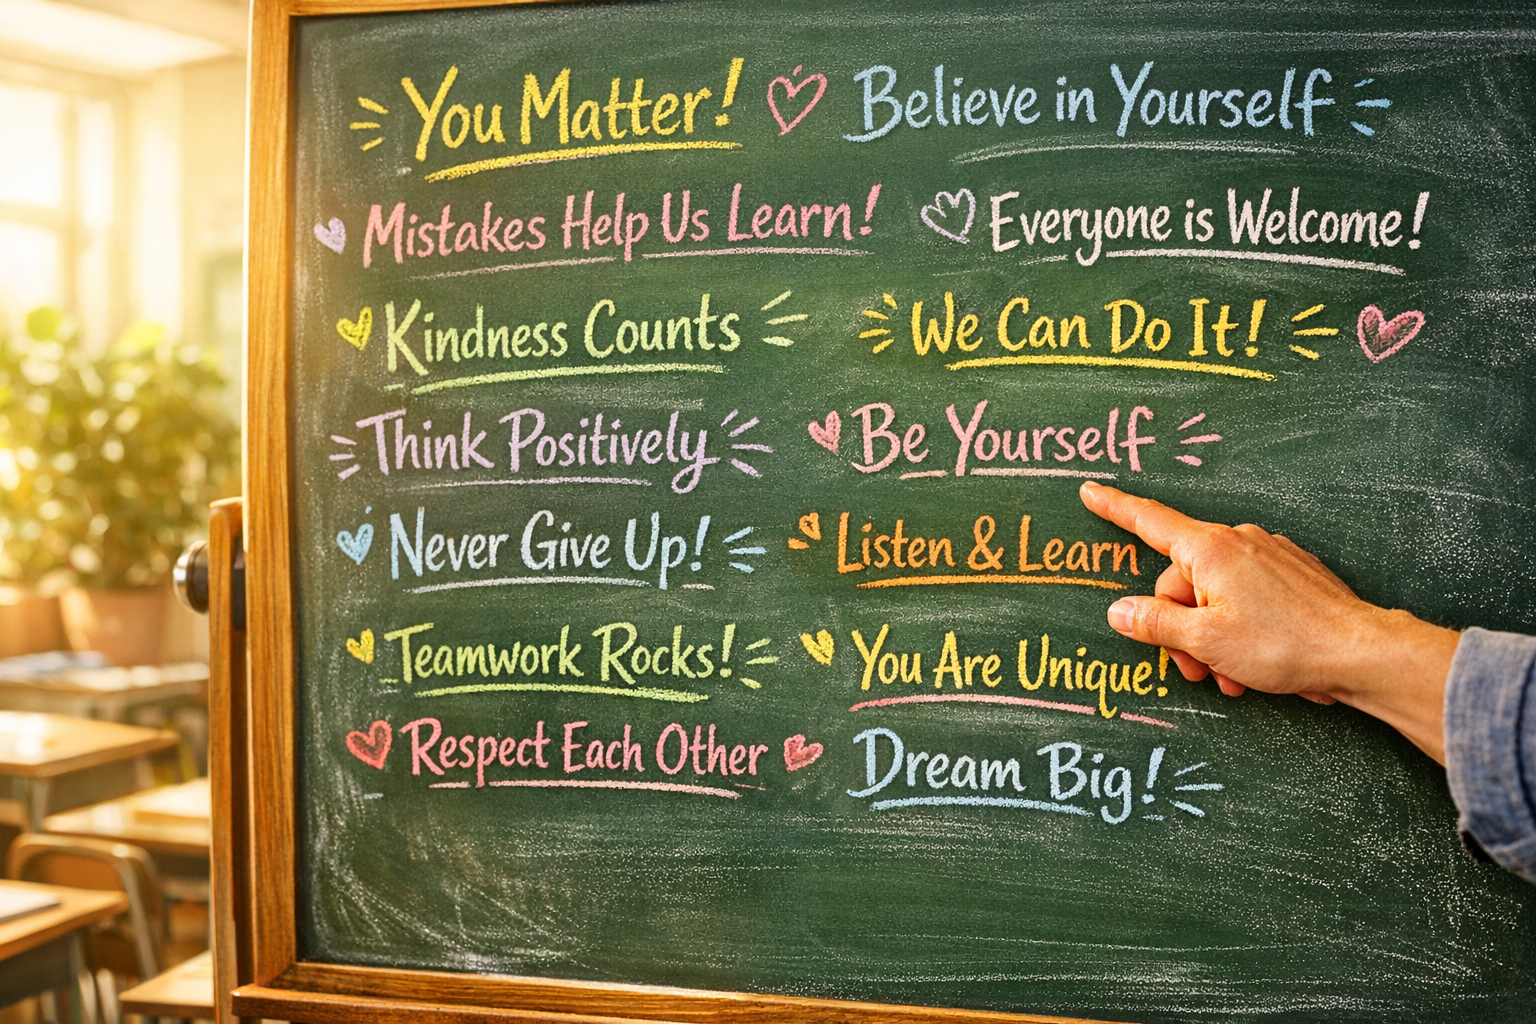 You Matter! Believe in Yourself
Mistakes Help Us Learn! Everyone is Welcome!
Kindness Counts We Can Do It!
Think Positively Be Yourself
Never Give Up! Listen & Learn
Teamwork Rocks! You Are Unique!
Respect Each Other Dream Big!